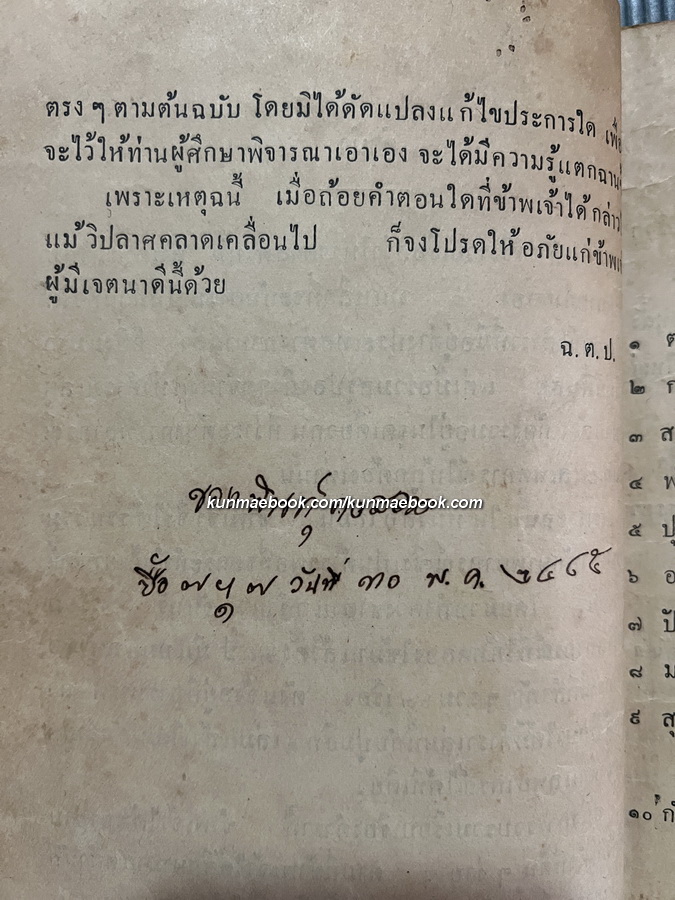 ตรง ๆ ตามต้นฉบับ โดยมิได้ดัดแปลงแก้ไขประการใด
จะไว้ให้ท่านผู้ศึกษาพิจารณาเอาเอง จะได้มีความรู้แตกฉาน
เพราะเหตุฉนี้ เมื่อถ้อยคำตอนใดที่ข้าพเจ้าได้กล่าว
แม้วิปลาศคลาดเคลื่อนไป ก็จงโปรดให้อภัยแก่
ผู้มีเจตนาดีนี้ด้วย
ฉ. ต. ป.
kunmaebook.com/kunmaebook.com
ซื้อ วันที่ ๓๐ พ. ค. ๒๔๘๕
๑ ต
๒ ก
๓ ส
๔ พ
๕ ปุ
๖ อ
๗ ปั
๘ ม
๙ สุ
๑๐ กำ